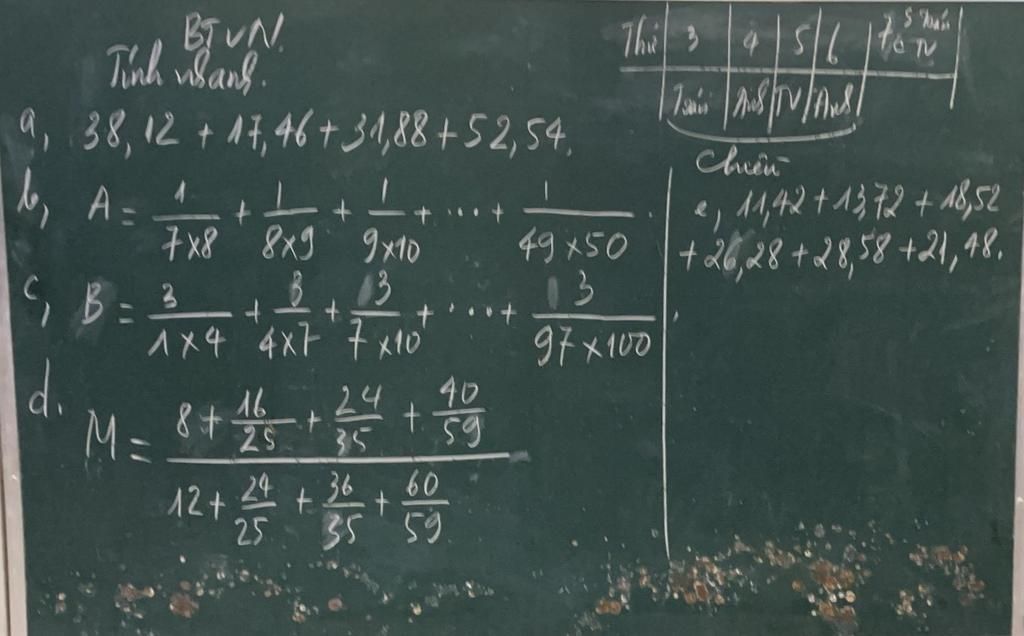 BTVN.
Tính nhanh.
a, 38,12 + 17,46 + 31,88 + 52,54.
b, A = 1/(7×8) + 1/(8×9) + 1/(9×10) + ... + 1/(49×50).
c, B = 3/(1×4) + 3/(4×7) + 3/(7×10) + ... + 3/(97×100).
d. M = (8 + 16/25 + 24/35 + 40/59)/(12 + 24/25 + 36/35 + 60/59)
Thứ 3 4 5 6 7 S TV
Toán Anh TV Anh
Chiều
e, 11,42 + 13,72 + 18,52
+ 26,28 + 28,58 + 21,48.